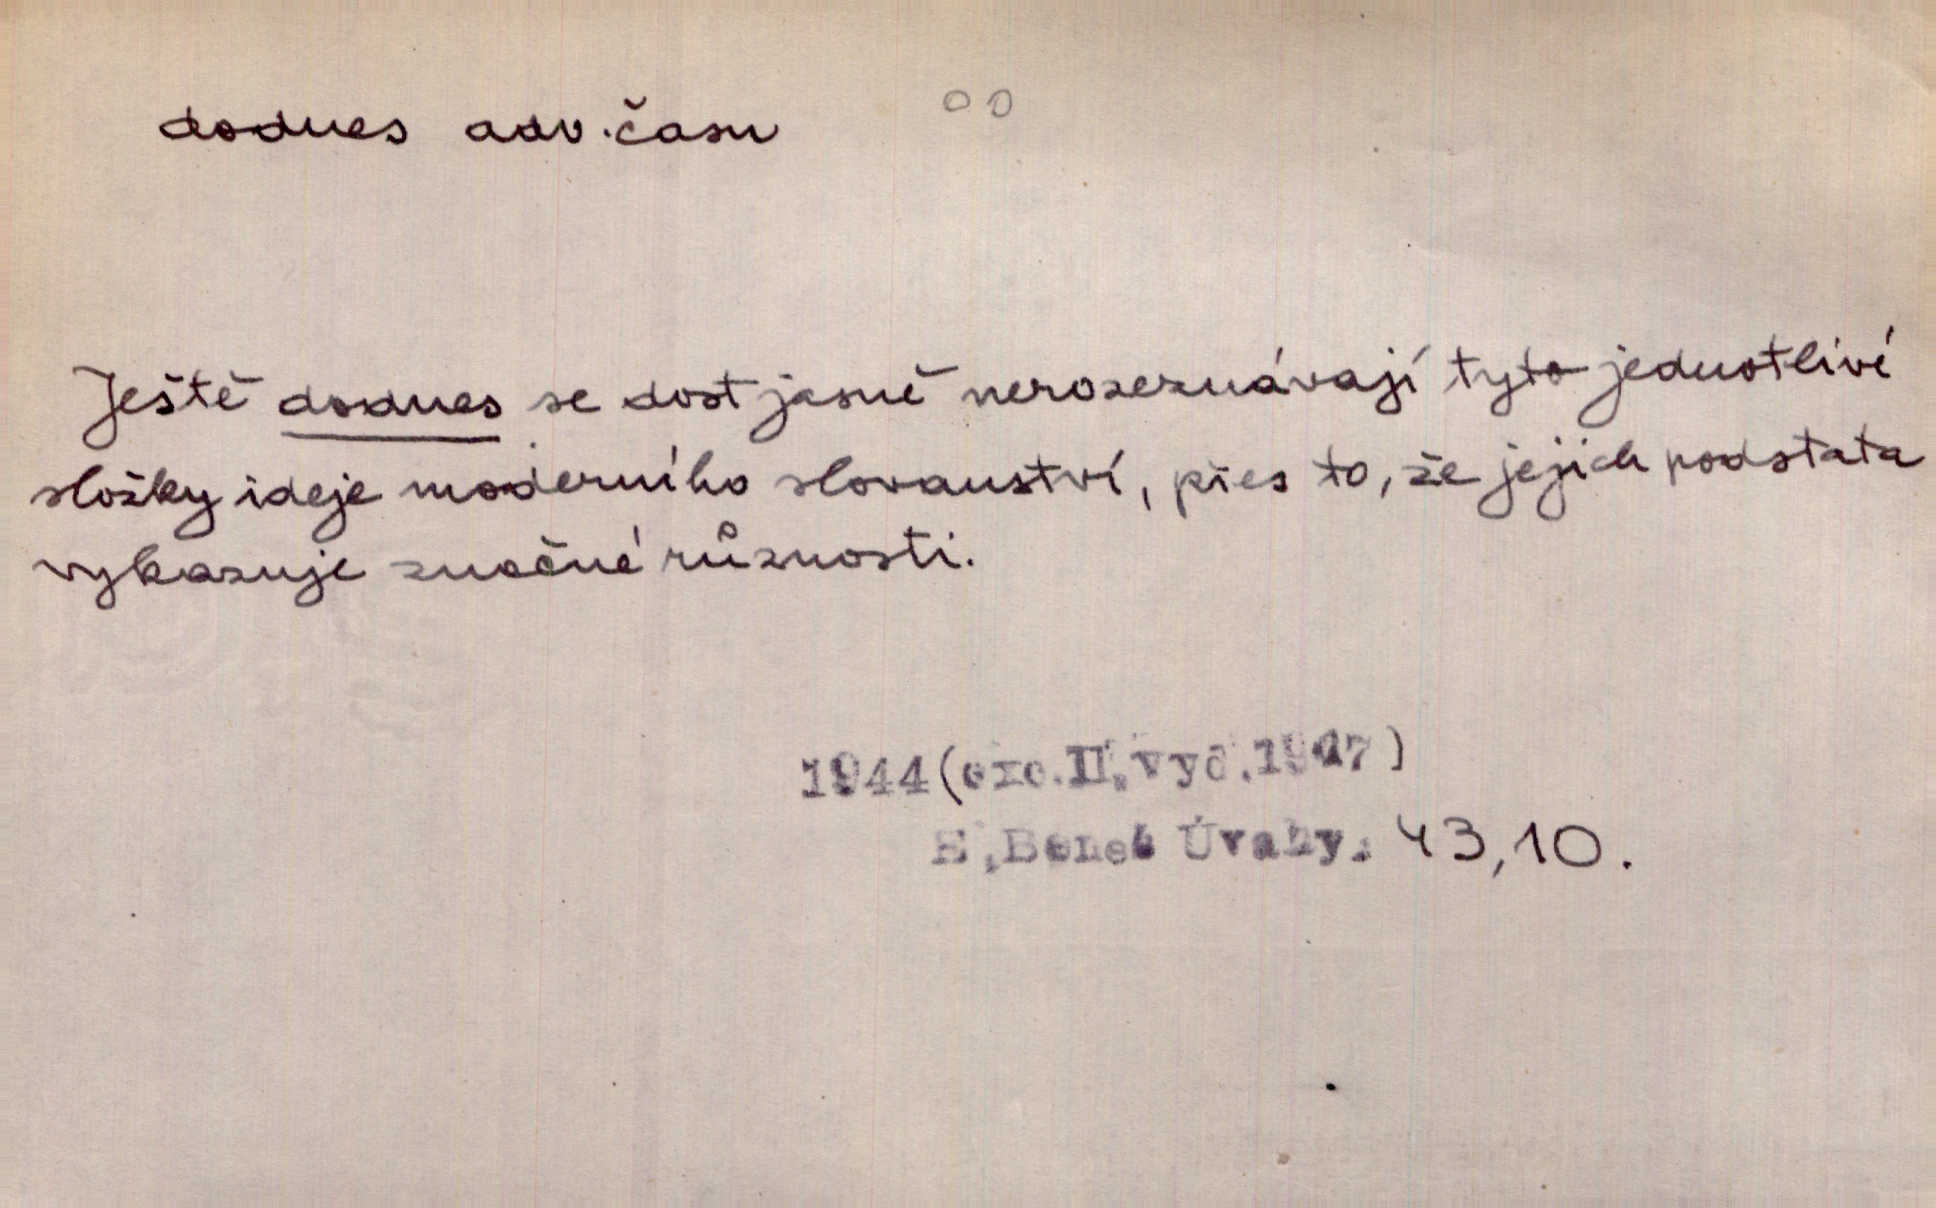 dodnes adv. času
00
Ještě dodnes se dost jasně nerozeznávají tyto jednotlivé
složky ideje moderního slovanství, přes to, že jejich podstata
vykazuje značné různosti.
1944 (exc. II. vyd. 1947)
E. Beneš Úvahy. 43,10.